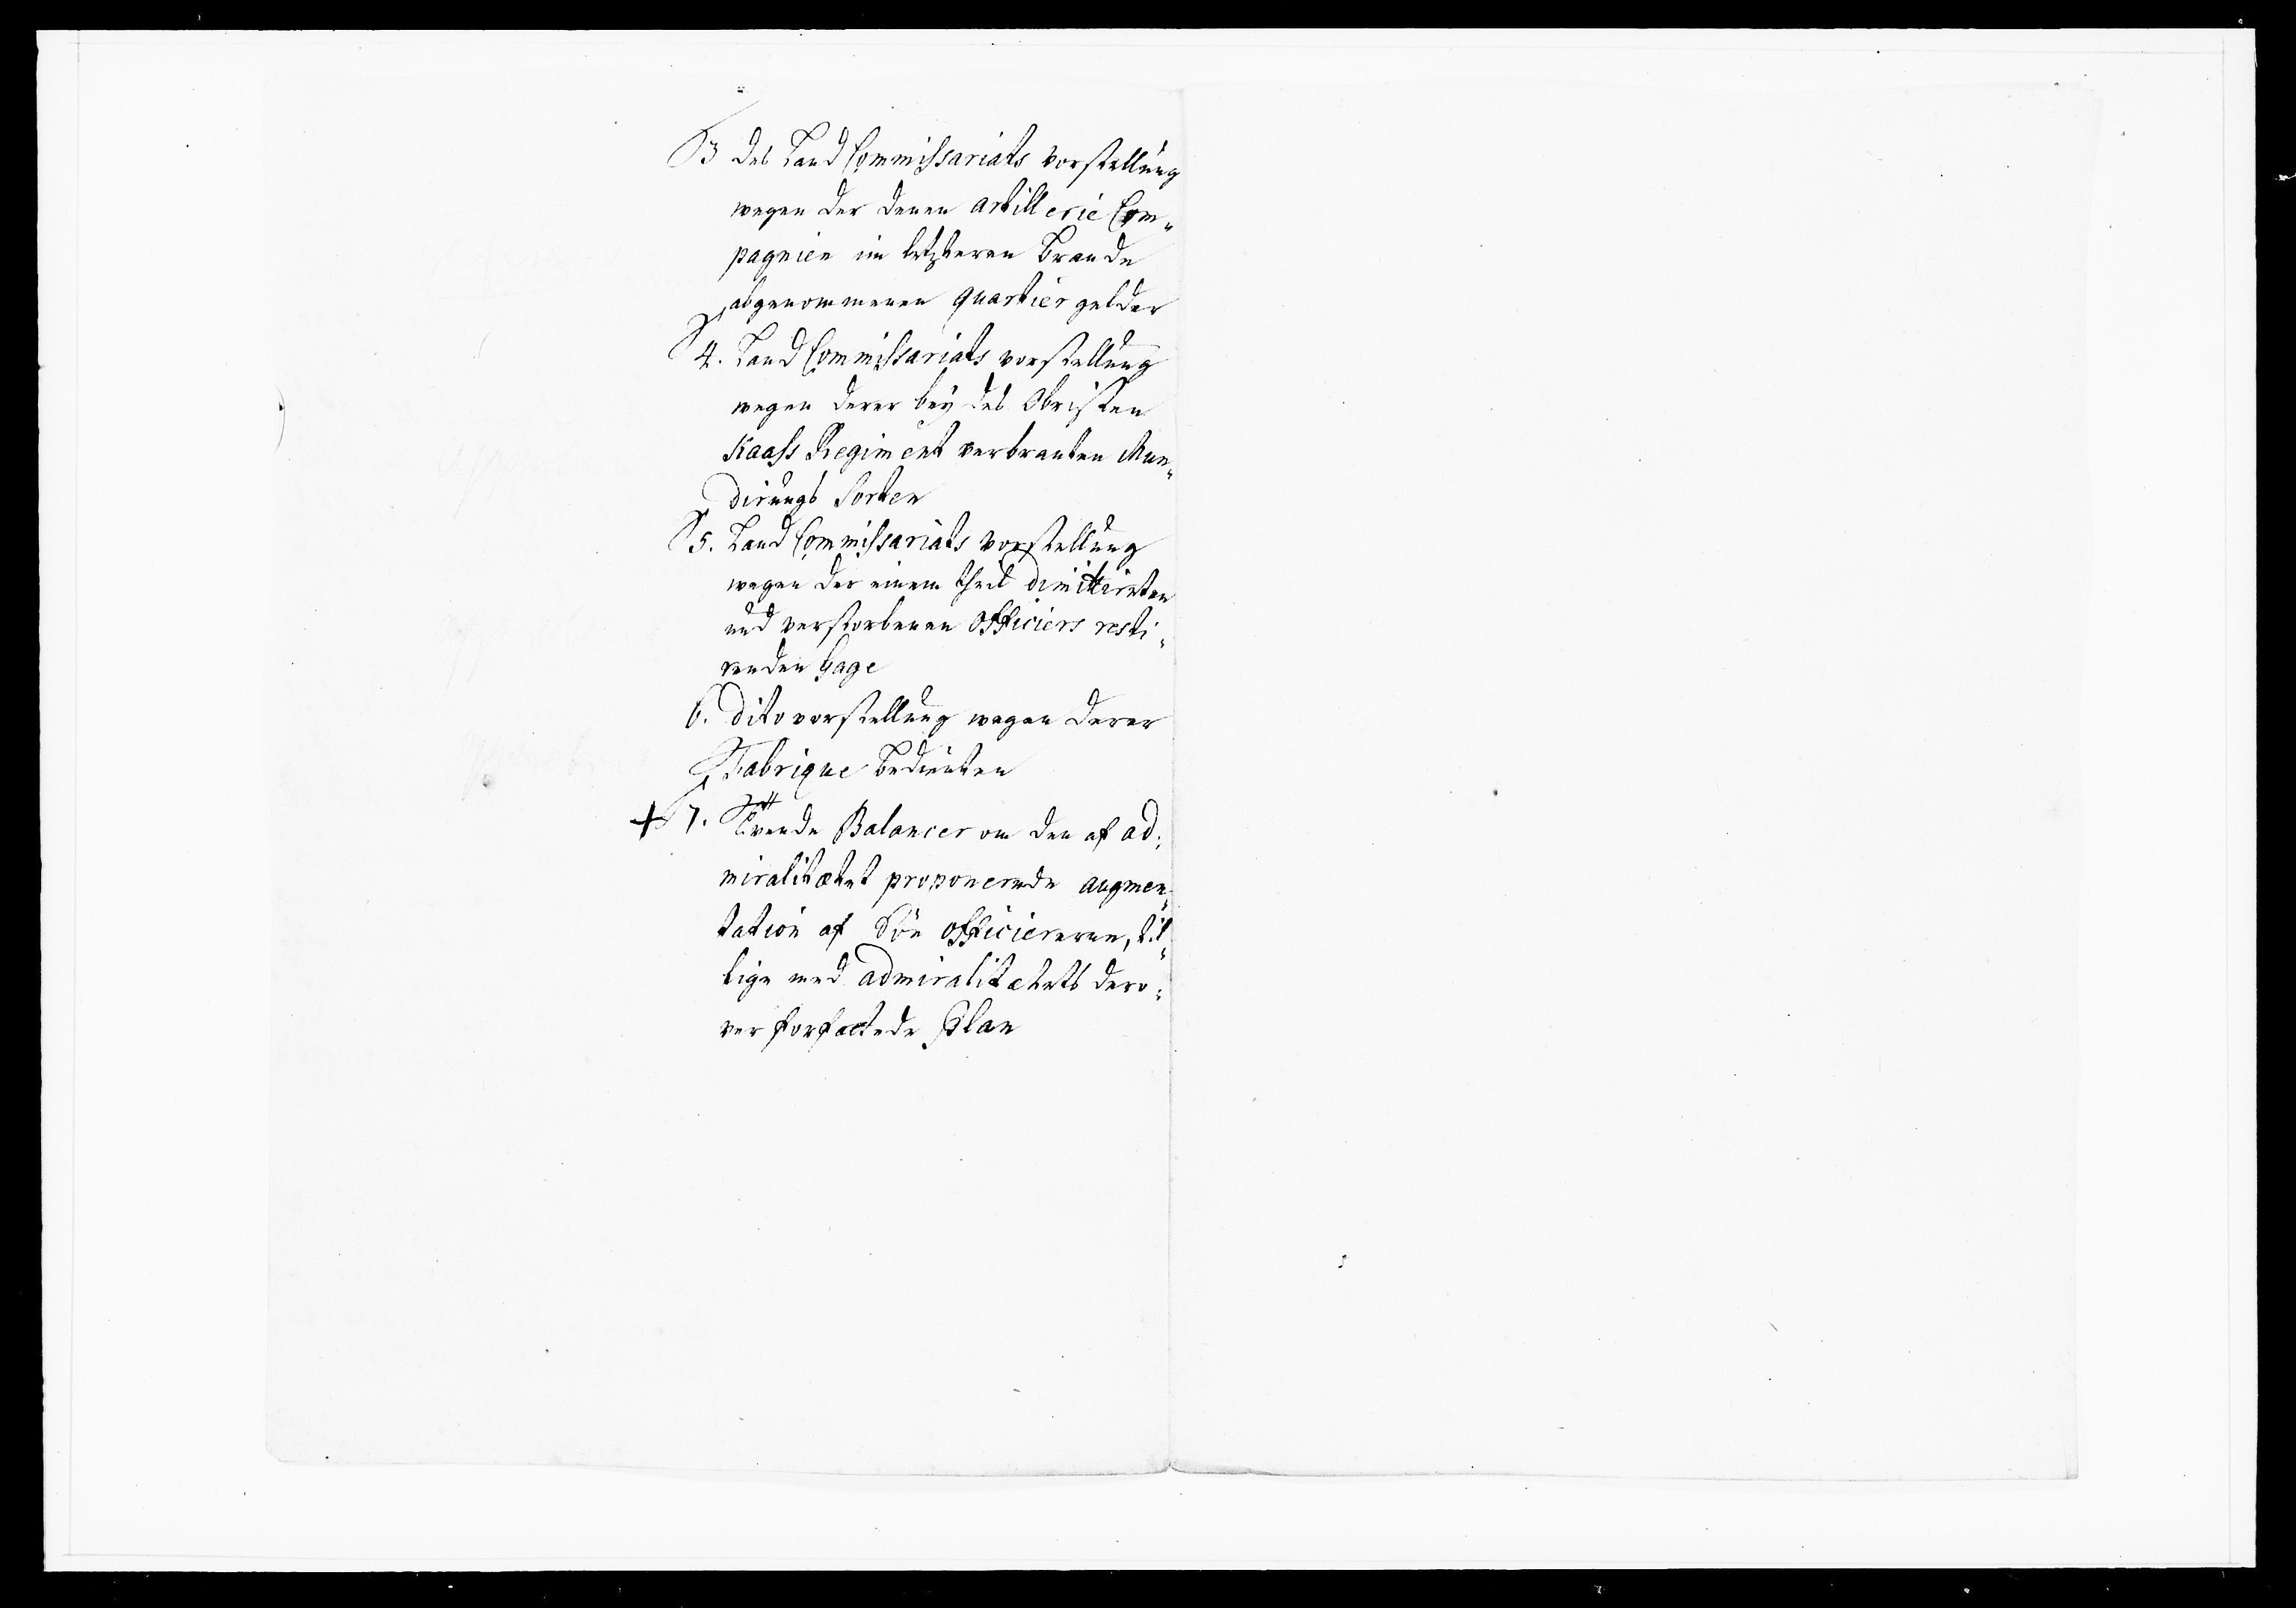 3 des Land Commissariats vorstellung
wegen der denen artillerie Com¬
pagnien im letzteren Brande
abgenommenen quartier gelder
4. Land Commissariats vorstellung
wegen derer bey des Obristen
Kaass Regiment verbranten Mun¬
dirungs Sorten
5. Land Commissariats vorstellung
wegen der einem theil dimittirten
und verstorbenen Officiers resti¬
renden Gage
6. dito vorstellung wegen derer
Fabrique bedienten
+ 7. Tvende Balancer om den af ad¬
miralitætet proponerede augmen¬
tation af Söe officiererne, til¬
lige med admiralitætets dero¬
ver forfattede Plan